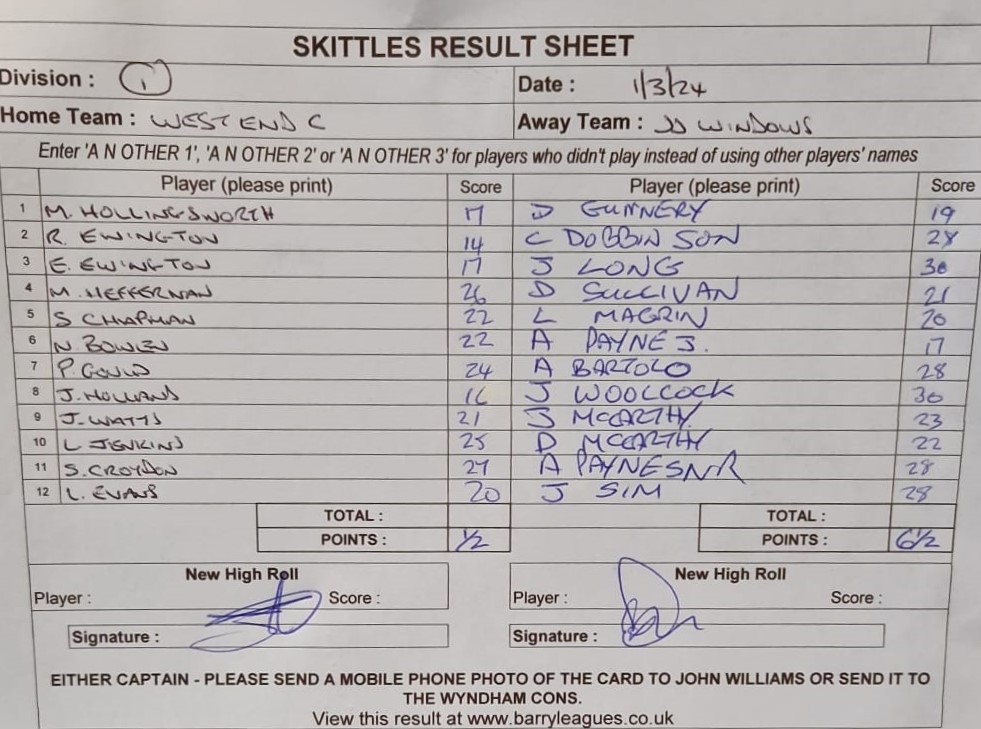 SKITTLES RESULT SHEET
Division : 1 Date : 1/3/24
Home Team : WEST END C Away Team : JJ WINDOWS
Enter 'A N OTHER 1', 'A N OTHER 2' or 'A N OTHER 3' for players who didn't play instead of using other players' names
Player (please print) Score Player (please print) Score
1 M. HOLLINGSWORTH 17 D GUNNERY 19
2 R. EWINGTON 14 C DOBBINSON 28
3 E. EWINGTON 17 J LONG 30
4 M. HEFFERNAN 26 D SULLIVAN 21
5 S CHAPMAN 22 L MAGRIN 20
6 N. BOWEN 22 A PAYNE J. 17
7 P. GOULD 24 A BARTOLO 28
8 J. HOLLAND 16 J WOOLCOCK 30
9 J. WATTS 21 J MCCARTHY 23
10 L JENKINS 25 D MCCARTHY 22
11 S. CROYDON 27 A PAYNE SNR 28
12 L. EVANS 20 J SIM 28
TOTAL : TOTAL :
POINTS : 1/2 POINTS : 6 1/2
New High Roll New High Roll
Player : Score : Player : Score :
Signature : Signature :
EITHER CAPTAIN - PLEASE SEND A MOBILE PHONE PHOTO OF THE CARD TO JOHN WILLIAMS OR SEND IT TO
THE WYNDHAM CONS.
View this result at www.barryleagues.co.uk